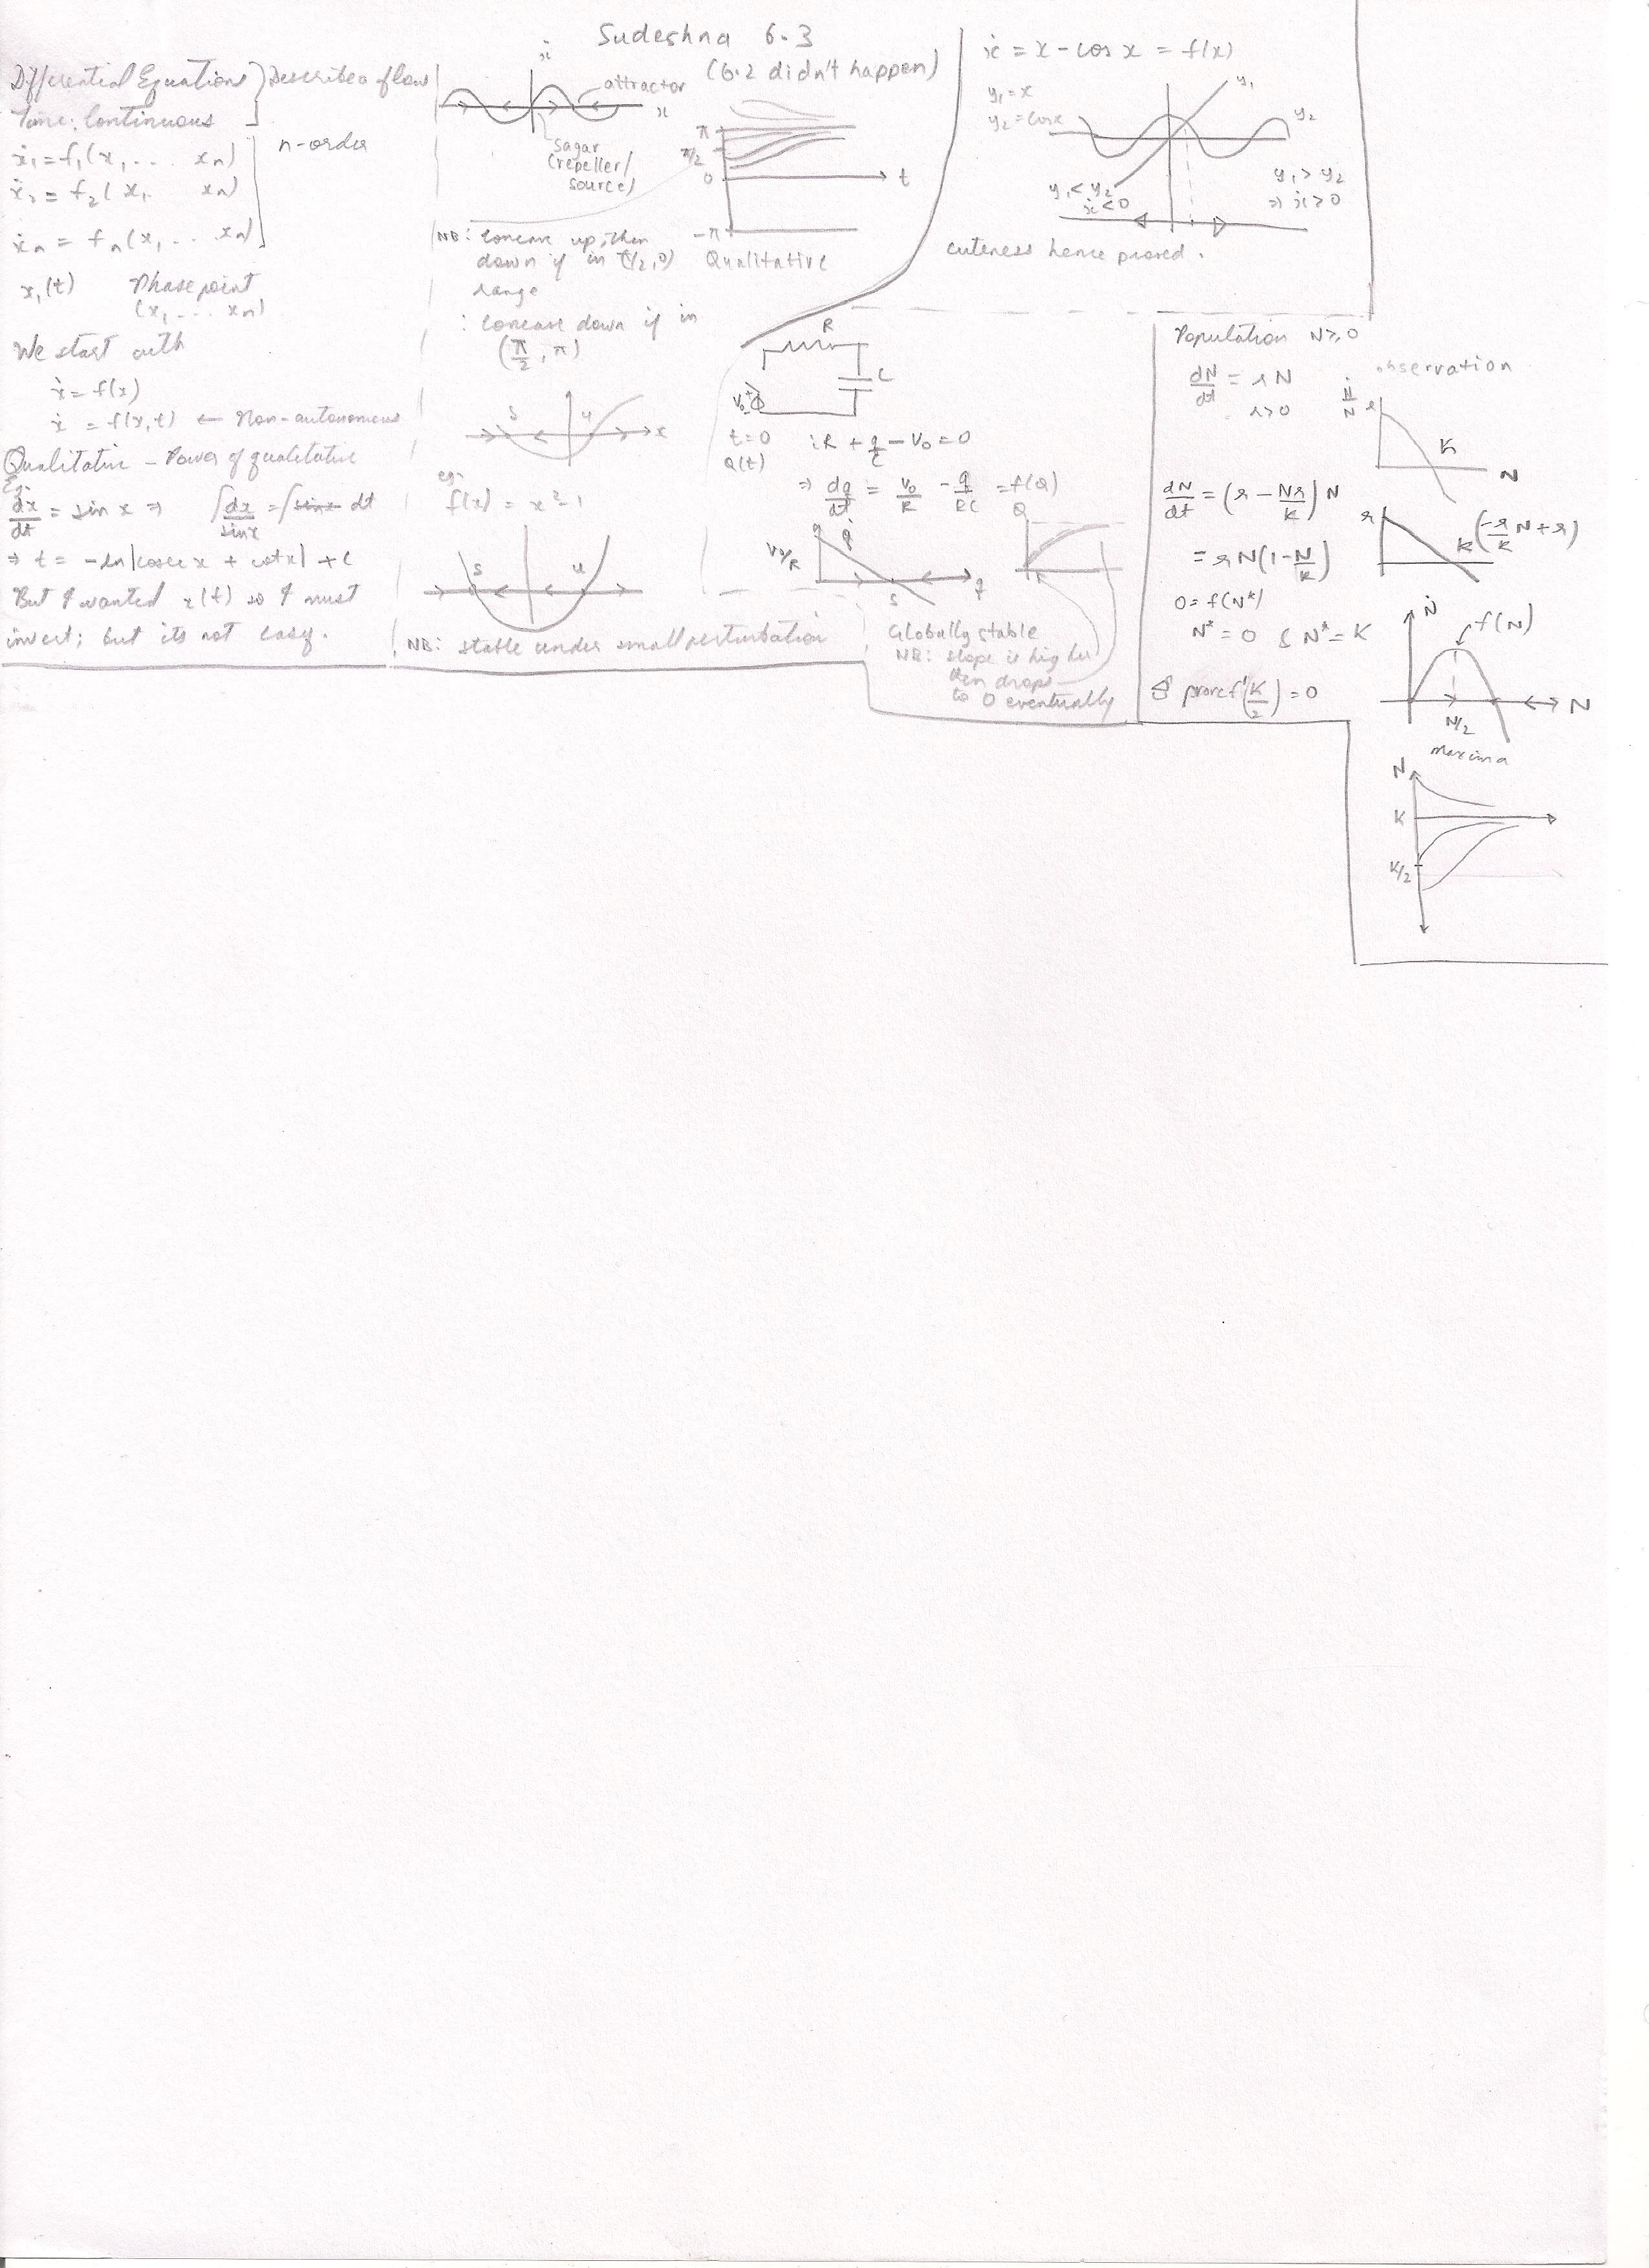 Sudeshna 6.3
(6.2 didn't happen)
Differential Equations } Describe a flow
Time: Continuous
ẋ₁ = f₁(x₁ ... xₙ)
n-order
ẋ₂ = f₂(x₁ xₙ)
ẋₙ = fₙ(x₁ ... xₙ)
x₁(t) Phase point
(x₁ ... xₙ)
We start with
ẋ = f(x)
ẋ = f(x,t) ← Non-autonomous
Qualitative – Power of qualitative
Eg:
dx/dt = sin x ⇒ ∫dx/sinx = ∫ dt
⇒ t = -ln|cosec x + cot x| + C
But I wanted x(t) so I must
invert; but its not easy.
ẋ
attractor
x
Sagar
(repeller/
source)
π
π/2
0
t
-π
Qualitative
NB: Concave up, then
down if in (π/2, 0)
range
: Concave down if in
(π/2, π)
s u x
eg:
f(x) = x² - 1
s u
NB: stable under small perturbation
ẋ = x - cos x = f(x)
y₁ = x
y₂ = cosx
y₁
y₂
y₁ < y₂
ẋ < 0
y₁ > y₂
⇒ ẋ > 0
cuteness hence proved.
R
C
V₀
t=0 iR + q/C - V₀ = 0
Q(t)
⇒ dq/dt = V₀/R - q/RC = f(Q)
V₀/R q̇
s q
Q
Globally stable
NB: slope is higher
then drops
to 0 eventually
Population N ≥ 0
dN/dt = rN
r > 0
observation
Ṅ/N r
K
N
dN/dt = (r - Nr/K) N
r
K (-r/K N + r)
= rN(1 - N/K)
0 = f(N*)
N* = 0 & N* = K
prove f'(K/2) = 0
Ṅ
f(N)
N
N/2
maxima
N
K
K/2